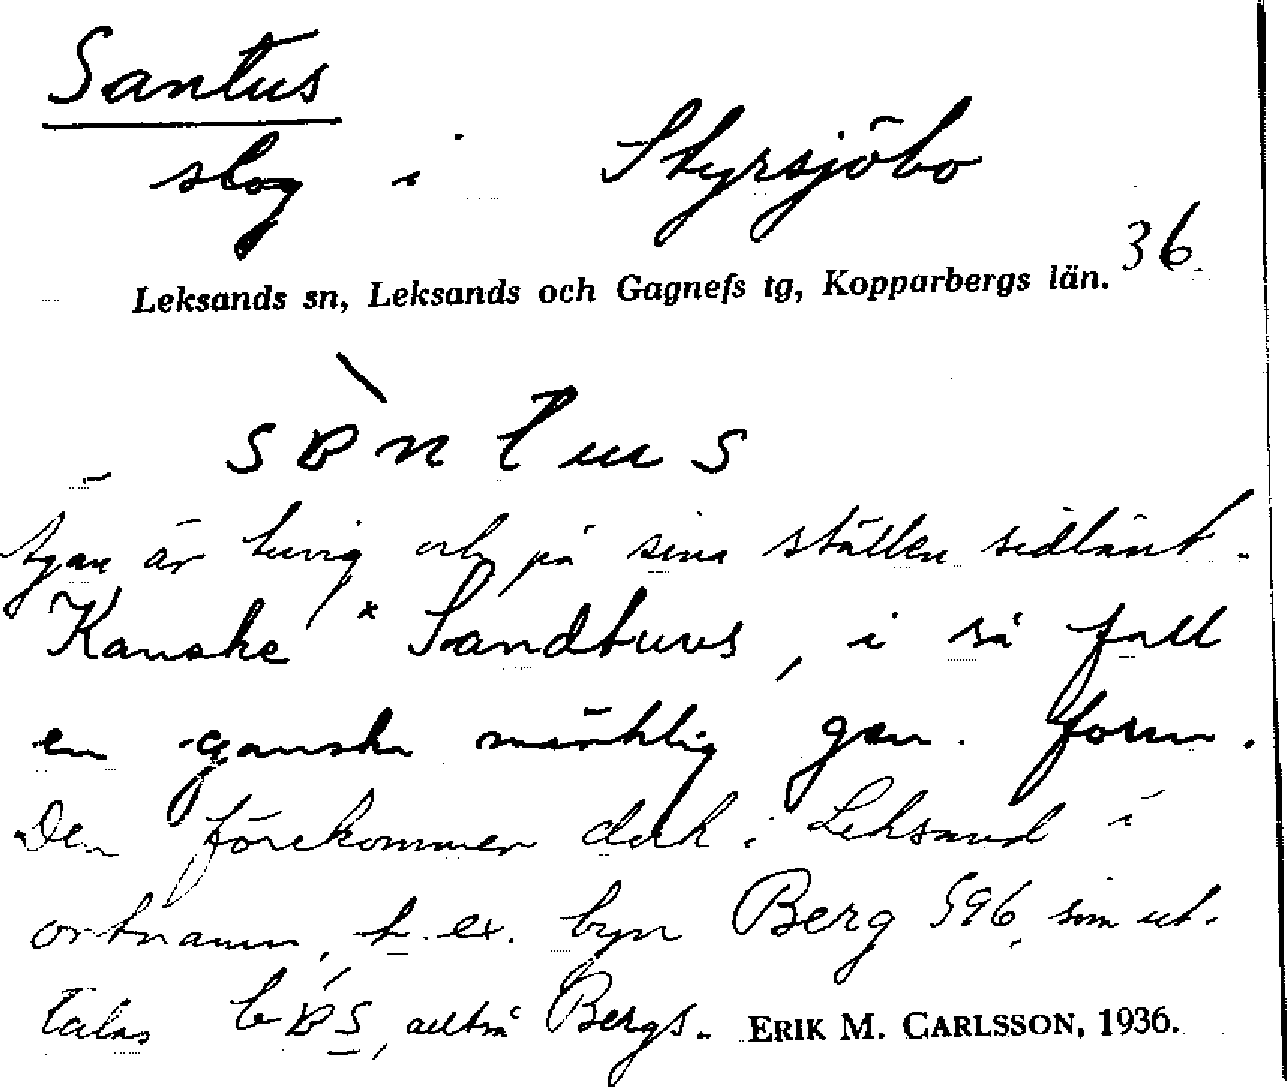 Santus
slog i Styrsjöbo
36
Leksands sn, Leksands och Gagnefs tg, Kopparbergs län.
är tuvig och på sina ställen sidlänt.
Kanske *Sandtuvs, i så fall
en ganska märklig gen. form.
Den förekommer dock i Leksand i
ortnamn, t. ex. byn Berg 596, som ut-
talas, alltså Bergs. ERIK M. CARLSSON, 1936.